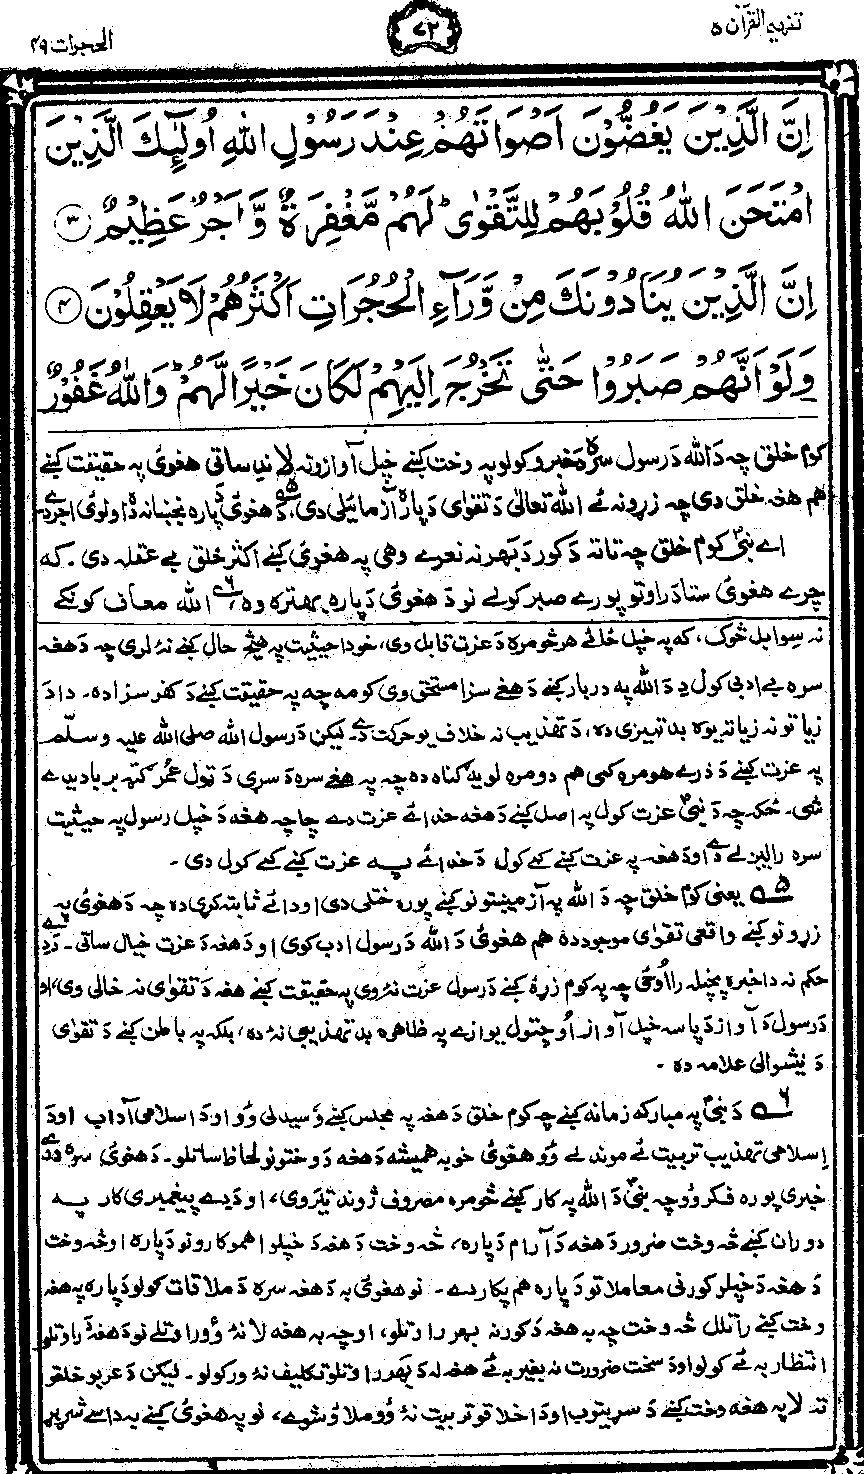 تفهيم القرآن ۵
۷۲
الحجرات ۴۹
اِنَّ الَّذِيْنَ يَغُضُّوْنَ اَصْوَاتَهُمْ عِنْدَ رَسُوْلِ اللّٰهِ اُولٰٓئِكَ الَّذِيْنَ
امْتَحَنَ اللّٰهُ قُلُوْبَهُمْ لِلتَّقْوٰى ؕ لَهُمْ مَّغْفِرَةٌ وَّاَجْرٌ عَظِيْمٌ ۳
اِنَّ الَّذِيْنَ يُنَادُوْنَكَ مِنْ وَّرَآءِ الْحُجُرَاتِ اَكْثَرُهُمْ لَا يَعْقِلُوْنَ ۴
وَلَوْ اَنَّهُمْ صَبَرُوْا حَتّٰى تَخْرُجَ اِلَيْهِمْ لَكَانَ خَيْرًا لَّهُمْ ؕ وَاللّٰهُ غَفُوْرٌ
كوم خلق چه دَ الله دَ رسول سره دَ خبرو كولو په وخت كښے خپل آوازونه لاندنياساتى هغوئ په حقيقت كښے
هم هغه خلق دى چه زړونه ئے الله تعالىٰ دَ تقوىٰ دَ پاره آزمائيلى دى ۵، دَ هغوئ دَ پاره بخښنه ده او لوئ اجر دے
اے نبىؐ كوم خلق چه تا ته دَ كور دَ بهر نه نعرے وهى په هغوئ كښے اكثر خلق بے عقله دى. كه
چرے هغوئ ستا دَ راوتو پورے صبر كولے نو دَ هغوئ دَ پاره بهتره وه ۶، الله معاف كونكے
نه سوا بل څوك، كه په خپل ځائے هر څومره دَ عزت قابل وى، خو دا حيثيت په هيڅ حال كښے نۀ لرى چه دَ هغه
سره بے ادبى كول دِ دَ الله په دربار كښے دَ هغے سزا مستحق وى كومه چه په حقيقت كښے دَ كفر سزا ده۔ دا دَ
زيات نه زيات يوه بد تميزى ده، دَ تهذيب نه خلاف يو حركت دے۔ ليكن دَ رسول الله صلى الله عليه وسلّم
په عزت كښے دَ ذرے هومره كمى هم دومره لويه گناه ده چه په هغے سره دَ سړى دَ ټول عمر گټه بربادېدے
شى۔ ځكه چه دَ نبىؐ عزت كول په اصل كښے دَ هغه خدائے عزت دے چا چه هغه دَ خپل رسول په حيثيت
سره رالېږلے دے او دَ هغه په عزت كښے كمے كول دَ خدائے په عزت كښے كمے كول دى۔
۵ يعنى كوم خلق چه دَ الله په آزمېښتونو كښے پوره ختلى دى او دائے ثابته كړى ده چه دَ هغوئ په
زړونو كښے واقعى تقوىٰ موجوده ده هم هغوئ دَ الله دَ رسول ادب كوى او دَ هغه دَ عزت خيال ساتى۔ دَ دے
حكم نه دا خبره پخپله راؤځى چه په كوم زړۀ كښے دَ رسول عزت نۀ وى په حقيقت كښے هغه دَ تقوىٰ نه خالى وى، او
دَ رسول دَ آواز دَ پاسه خپل آواز اوچتول يوازے په ظاهره بد تهذيبى نۀ ده، بلكه په باطن كښے دَ تقوىٰ
دَ نيشوالى علامه ده۔
۶ دَ نبىؐ په مباركه زمانه كښے چه كوم خلق دَ هغه په مجلس كښے وسيدلى وُو او دَ اسلامى آداب او دَ
اسلامى تهذيب تربيت ئے موندلے وُو هغوئ خو به هميشه دَ هغه دَ وختونو لحاظ ساتلو۔ دَ هغوئ سره دَ دے
خبرى پوره فكر وُو چه نبىؐ دَ الله په كار كښے څومره مصروف ژوند تېروى، او دَ دے پيغمبرى كار په
دوران كښے څه وخت ضرور دَ هغه دَ آرام دَ پاره، څه وخت دَ هغه دَ خپلو اهمو كارونو دَ پاره او څه وخت
دَ هغه دَ خپلو كورنى معاملاتو دَ پاره هم پكار دے۔ نو هغوئ به دَ هغه سره دَ ملاقات كولو دَ پاره په هغه
وخت كښے راتلل څه وخت چه به هغه دَ كور نه بهر راوتلو، او چه به هغه لا نۀ وُو راوتلے نو دَ هغۀ دَ راوتلو
انتظار به ئے كولو او دَ سخت ضرورت نه بغير به ئے هغه له دَ بهر راوتلو تكليف نۀ وركولو۔ ليكن دَ عربو خلقو
ته لا په هغه وخت كښے دَ سړيتوب او دَ اخلاقو تربيت نۀ وُو ملاؤ شوے، نو په هغوئ كښے به داسے